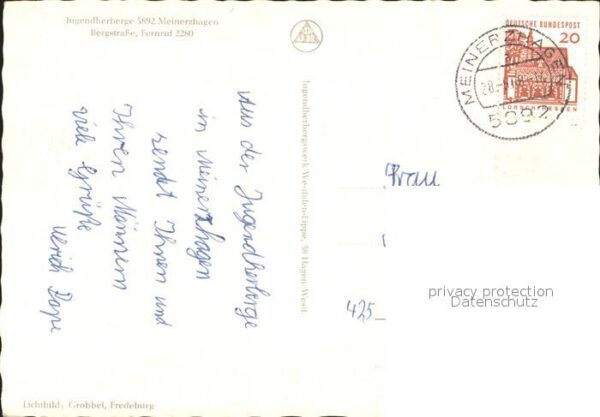 Jugendherberge 5892 Meinerzhagen
Bergstraße, Fernruf 2280
DEUTSCHE BUNDESPOST
20
LORSCH HESSEN
MEINERZHAGEN
5892
Jugendherbergswerk Westfalen-Lippe, 58 Hagen/Westf.
Aus der Jugendherberge
in Meinerzhagen
sendet Ihnen und
Ihren Männern
viele Grüße
Ulrich
Frau
425
privacy protection
Datenschutz
Lichtbild: Grobbel, Fredeburg